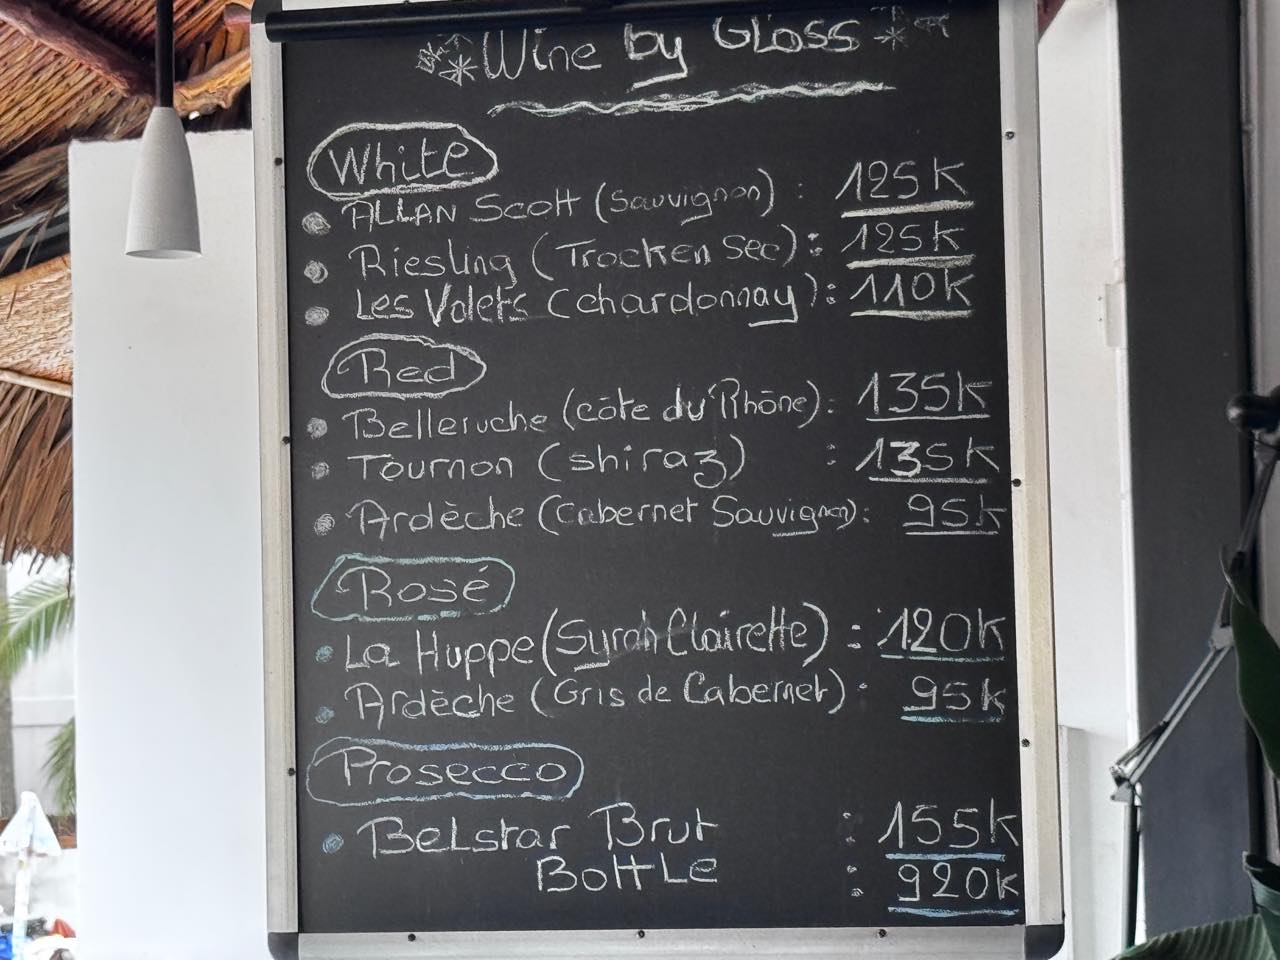 Wine by GLass
White
ALLAN Scott (Sauvignon) : 125K
Riesling (Trocken Sec) : 125K
Les Volets (chardonnay) : 110K
Red
Belleruche (côte du Rhône) : 135K
Tournon (shiraz) : 135K
Ardèche (Cabernet Sauvignon) : 95K
Rosé
La Huppe (Syrah Clairette) : 120K
Ardèche (Gris de Cabernet) : 95K
Prosecco
BeLstar Brut : 155K
BottLe : 920K